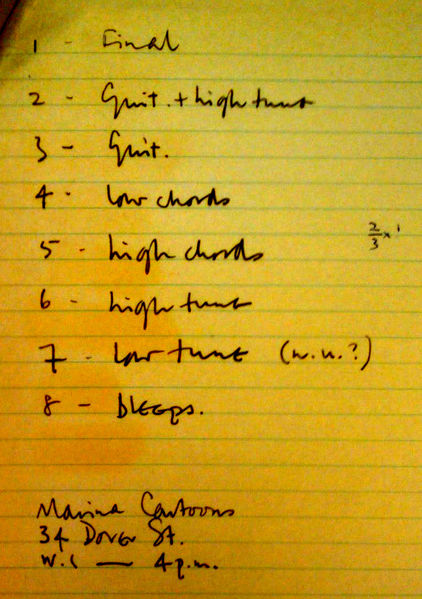 1 - Final
2 - Guit. + high tune
3 - Guit.
4 - low chords
5 - high chords
2/3 x 1
6 - high tune
7 - low tune (w.u.?)
8 - bleeps.
Marina Cartoons
34 Dover St.
W.1 — 4 p.m.